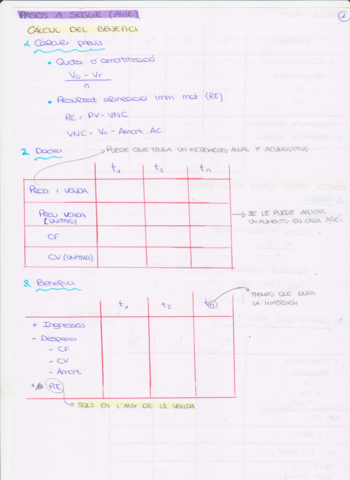 PASOS A SEGUIR (AVIC)
1
CÀLCUL DEL BENEFICI
1. Càlculs previs
• Quota d'amortització
Vo - Vr
n
• Resultat alineació imm. mat (RE)
RE: PV - VNC
VNC = Vo - Amort. AC.
2. Dades
PUEDE QUE TENGA UN INCREMENTO ANUAL Y ACUMULATIVO
t1 t2 tn
PROD I VENDA
PREU VENDA
(UNITARI)
SE LE PUEDE APLICAR
UN AUMENTO EN CADA AÑO
CF
CV (UNITARI)
3. Benefici
t1 t2 tn
TIEMPO QUE DURA
LA INVERSIÓN
+ Ingressos
- Despeses
- CF
- CV
- Amort
+ RE
SOLS EN L'ANY DE LA VENDA